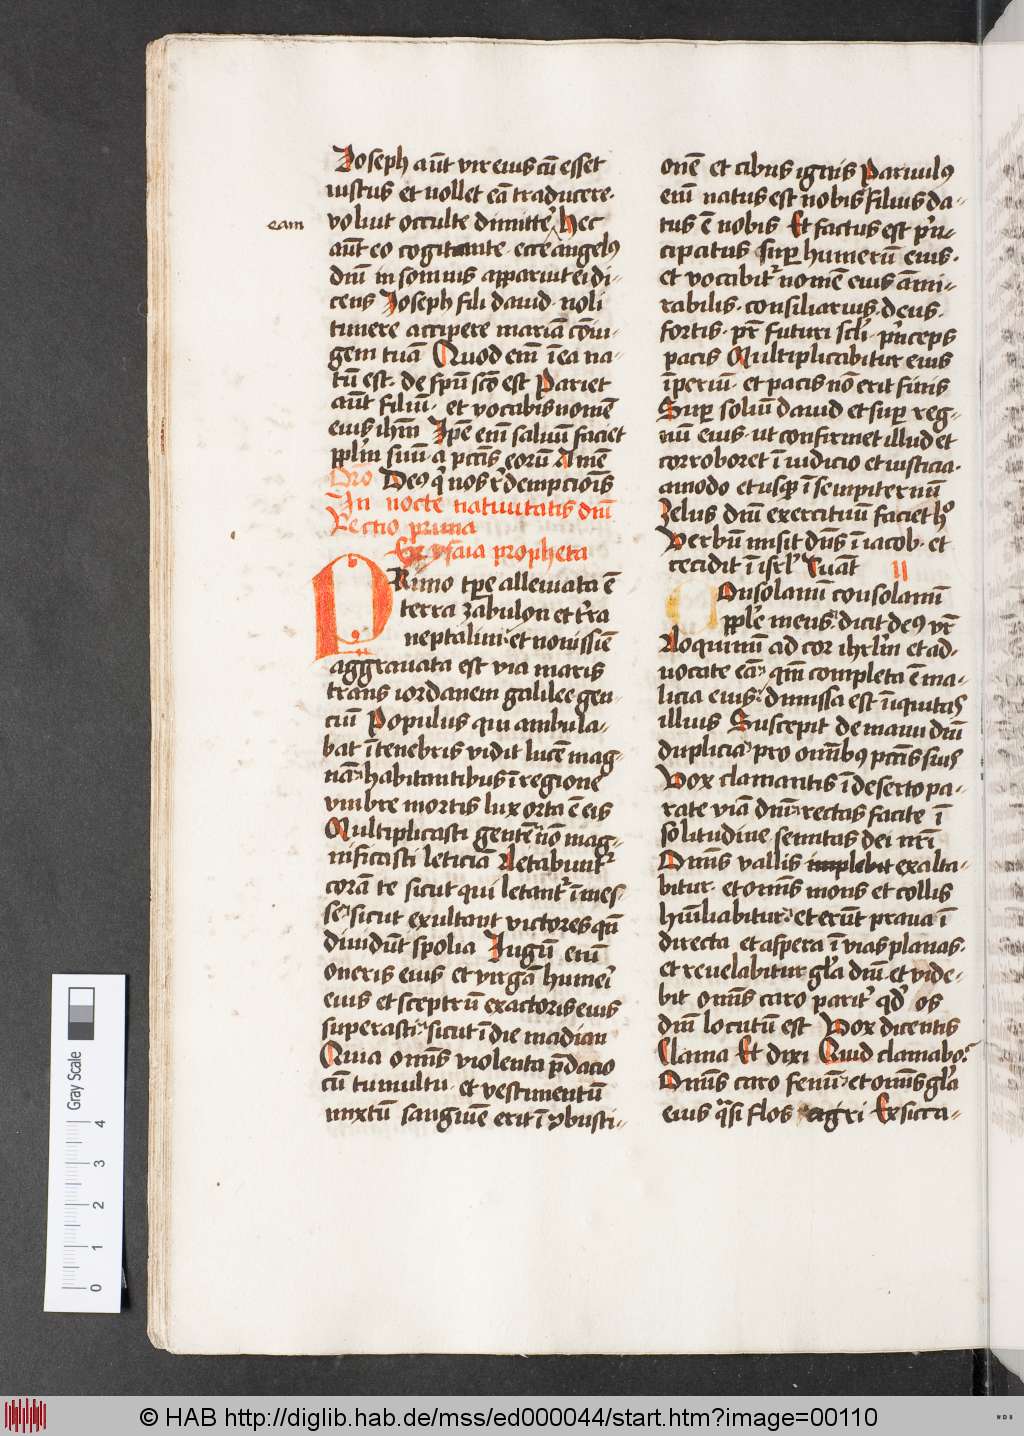 Joseph aūt vir eius cū esset
iustus et nollet eā traducere·
eam
voluit occulte dimitte͛ hec
aūt eo cogitante · ecce angelꝰ
dnī in somnis apparuit ei di-
cens Joseph fili dauid · noli
timere accipere mariā cōiu-
gem tuā Quod enī ī ea na-
tū est · de spū scō est Pariet
aūt filiū · et vocabis nomē
eius ihm̄ Ip̄e enī saluū faciet
pplm̄ suū · a pctīs eorū Amē
Orō Deꝰ q͛ nos r͛dempcionīs
In nocte natiuitatis dnī
Lectio prima
Ex ysaia propheta
PRimo tp̄e alleuiata ē
terra zabulon et t͛ra
neptalim · et nouissīe
aggrauata est via maris
trans iordanem galilee gen-
ciū Populus qui ambula-
bat ī tenebris vidit lucē mag-
nā · habitantibus ī regione
vmbre mortis lux orta ē eis
Multiplicasti gentē · nō mag-
nificasti leticiā Letabunt͛
corā te sicut qui letant͛ ī mes-
se · sicut exultant victores qn̄
diuidūt spolia Jugū enī
oneris eius et virgā humeī
eius et sceptrū exactoris eius
superasti · sicut ī die madian
Quia omīs violenta p̄dacio
cū tumultu · et vestimentū
mixtū sangwīe erit ī ꝯbusti-
onē et cibus ignis Paruulꝰ
enī natus est nobis filius da-
tus ē nobis Et factus est p͛n-
cipatus sup humerū eius·
et vocabit͛ nomē eius āmi-
rabilis · consiliarius · deus·
fortis · pr̄ futuri scl͛i · p͛nceps
pacis Multiplicabitur eius
īperiū · et pacis nō erit finis
Sup soliū dauid et sup reg-
nū eius · ut confirmet illud et
corroboret ī iudicio et iusticia·
amodo et usq ī sempiternū
Zelus dnī exercituū faciet hͦ
Verbū misit dn̄s ī iacob · et
cecidit ī isrl͛ Tu aūt II
Consolaminī consolaminī
ppl͛e meus · dicit deꝰ vr̄
Loquiminī ad cor ihrl͛m et ad-
uocate eā · qm̄ completa ē ma-
licia eius · dimissa est īiquitas
illius Suscepit de manu dnī
duplicia · pro omībus pctīs suis
Vox clamantis ī deserto pa-
rate viā dnī · rectas facite ī
solitudine semitas dei nr̄i
Omīs vallis implebit exalta-
bitur · et omīs mons et collis
hūiliabitur · et erūt praua ī
directa et aspera ī vias planas·
et reuelabitur gl͛a dnī · et vide-
bit omīs caro parit͛ qd͛ os
dnī locutū est Vox dicentis
Clama Et dixi Quid clamabo?
Omīs caro fenū · et omīs gl͛a
eius q̄si flos agri Exsicca-
Gray Scale
0 1 2 3 4
© HAB http://diglib.hab.de/mss/ed000044/start.htm?image=00110